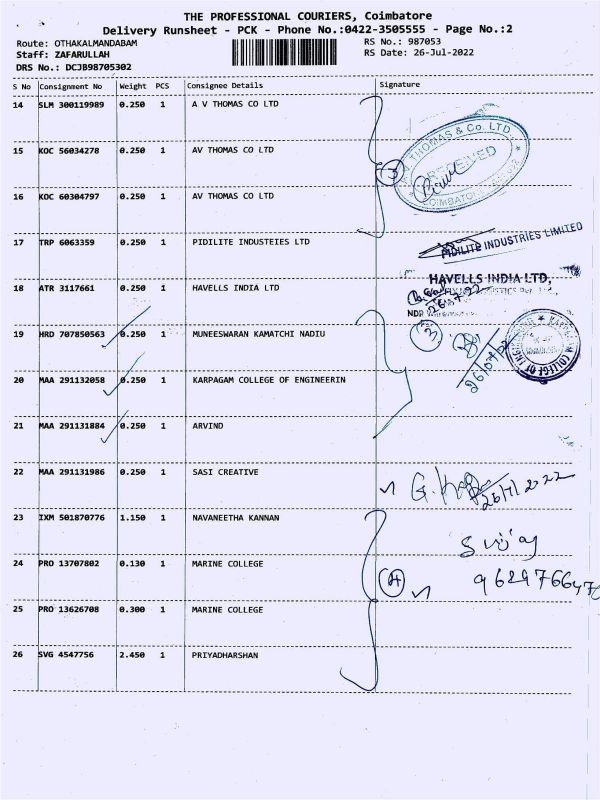 THE PROFESSIONAL COURIERS, Coimbatore
Delivery Runsheet - PCK - Phone No.:0422-3505555 - Page No.:2
Route: OTHAKALMANDABAM
RS No.: 987053
Staff: ZAFARULLAH
RS Date: 26-Jul-2022
DRS No.: DCJB98705302
S No Consignment No Weight PCS Consignee Details Signature
14 SLM 300119989 0.250 1 A V THOMAS CO LTD
15 KOC 56034278 0.250 1 AV THOMAS CO LTD
A V THOMAS & Co. LTD.
RECEIVED
3
COIMBATORE
16 KOC 60304797 0.250 1 AV THOMAS CO LTD
17 TRP 6063359 0.250 1 PIDILITE INDUSTEIES LTD
PIDILITE INDUSTRIES LIMITED
18 ATR 3117661 0.250 1 HAVELLS INDIA LTD
HAVELLS INDIA LTD,
26.7.22
NDR
19 HRD 707850563 0.250 1 MUNEESWARAN KAMATCHI NADIU
3
26/07/22
COLLEGE OF ENGINEERING
20 MAA 291132058 0.250 1 KARPAGAM COLLEGE OF ENGINEERIN
21 MAA 291131884 0.250 1 ARVIND
22 MAA 291131986 0.250 1 SASI CREATIVE
26/7/2022
23 IXM 501870776 1.150 1 NAVANEETHA KANNAN
24 PRO 13707802 0.130 1 MARINE COLLEGE
4
9629766470
25 PRO 13626708 0.300 1 MARINE COLLEGE
26 SVG 4547756 2.450 1 PRIYADHARSHAN